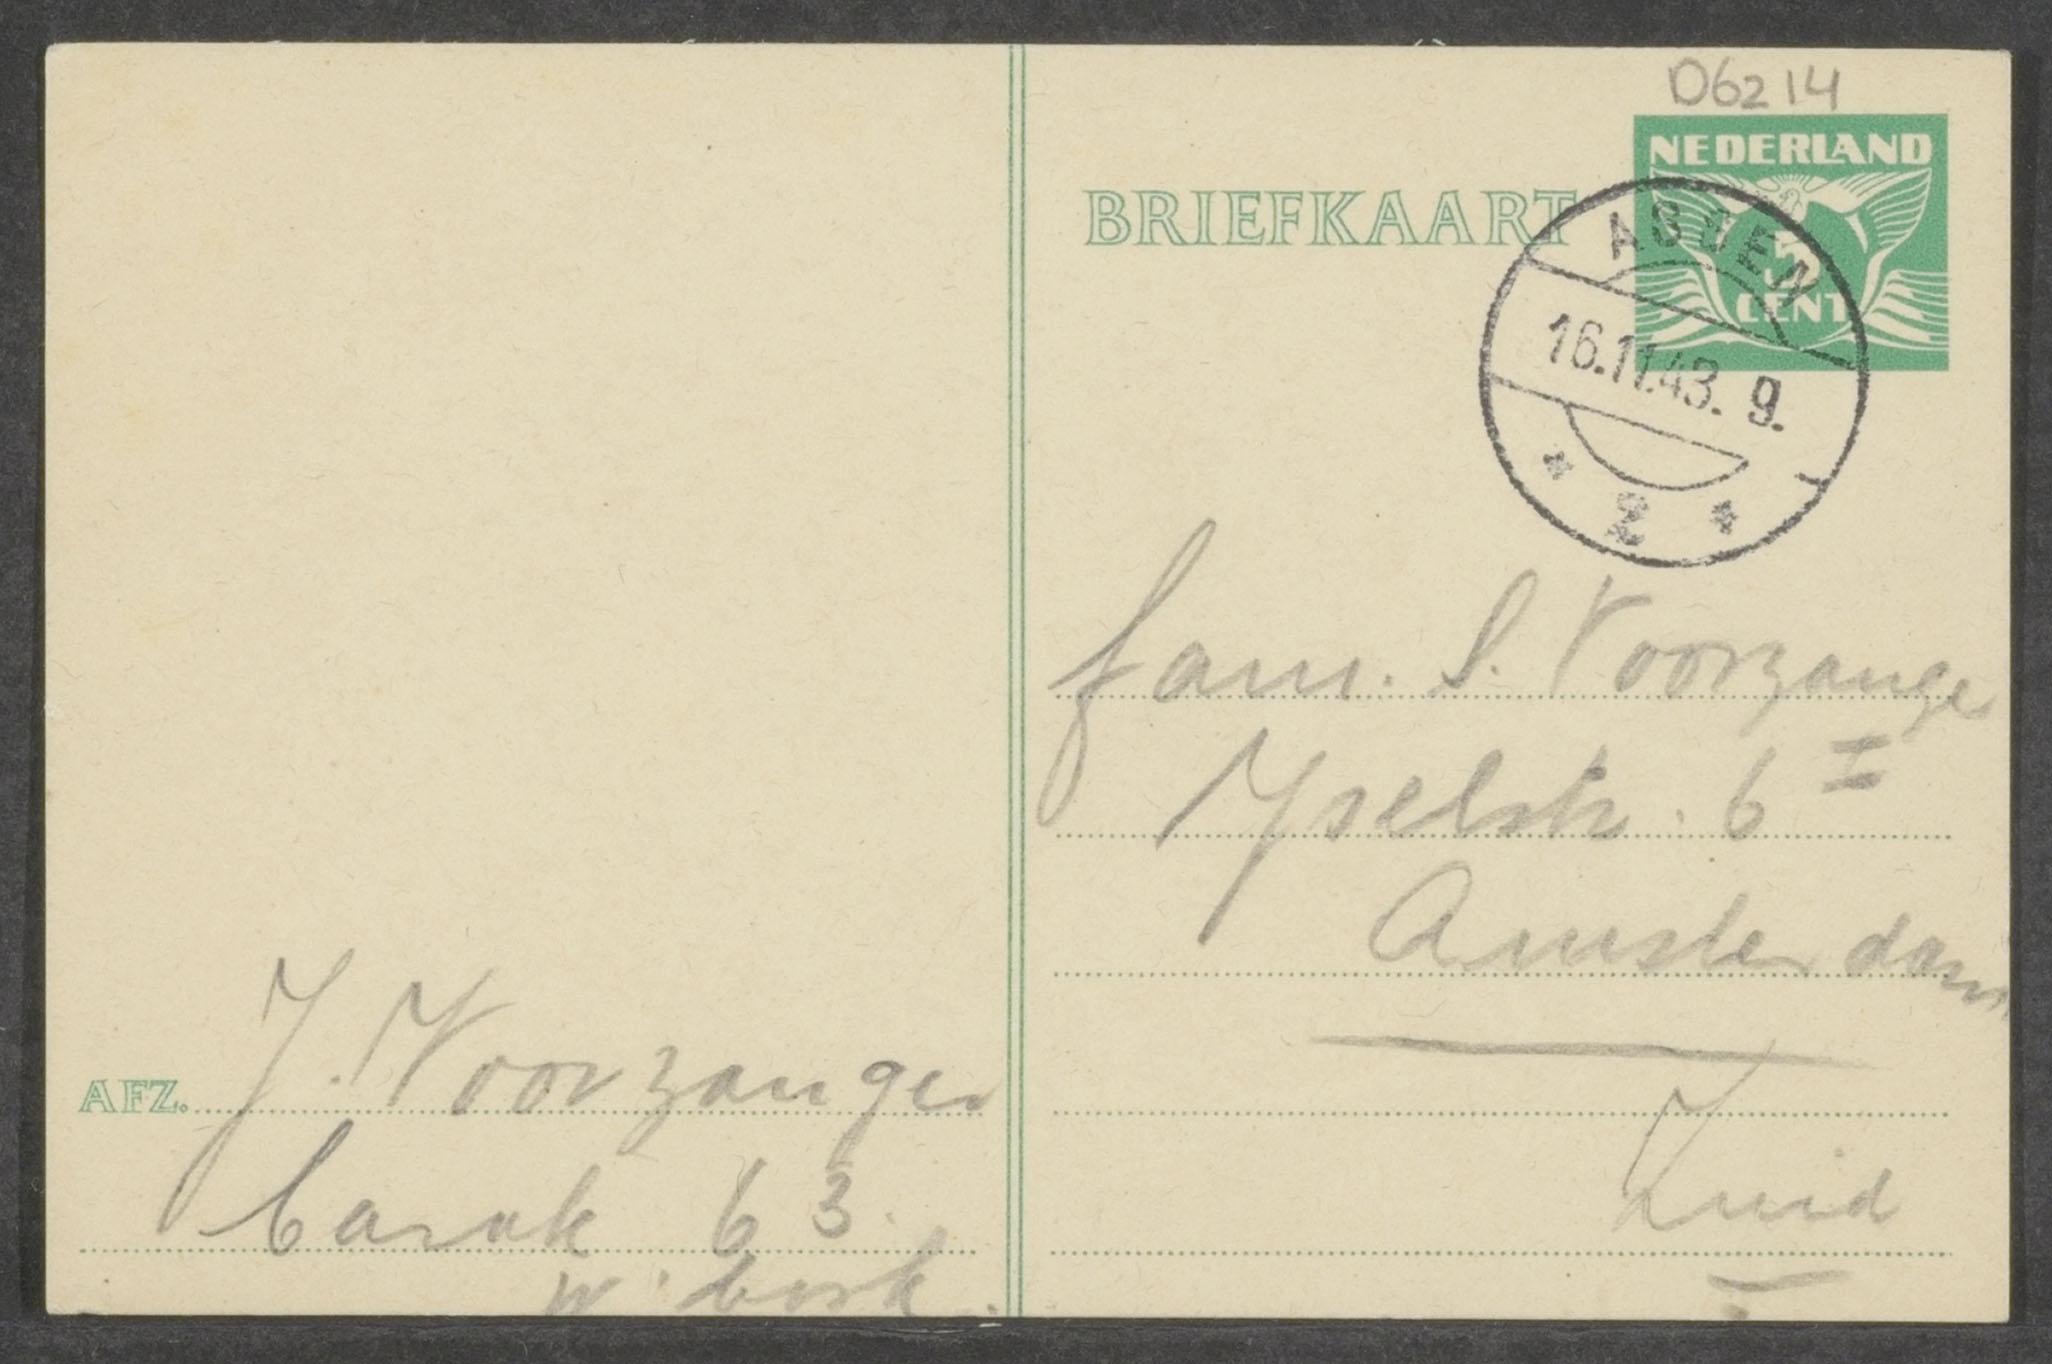 D6214
NEDERLAND
BRIEFKAART
5
CENT
ASSEN
16.11.43. 9.
* 2 *
fam. S. Voorzanger
Yselstr. 6 I
Amsterdam
Zuid
AFZ. J. Voorzanger
barak 63.
w. bork.